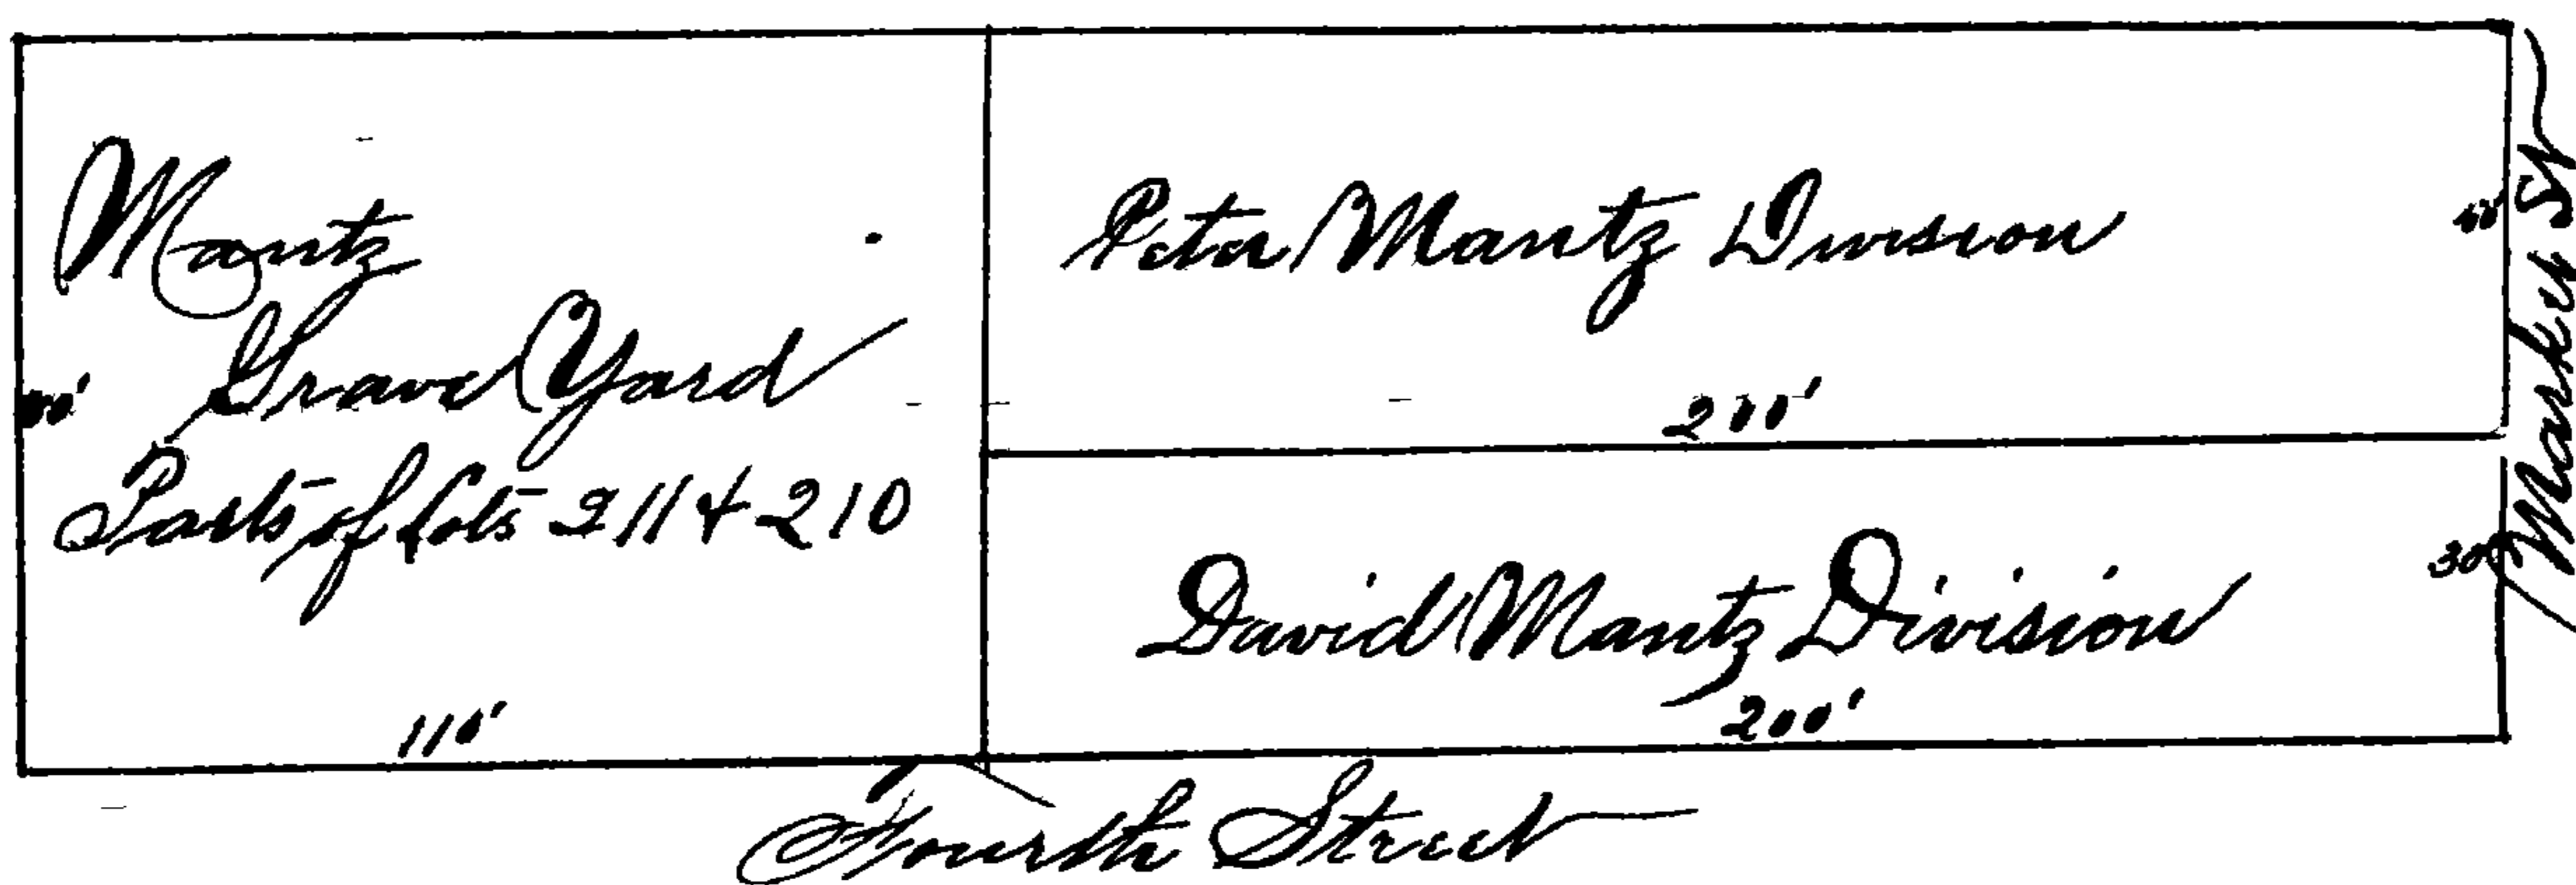 Mantz
Grave Yard
Parts of Lots 211 & 210
110'
Peter Mantz Division
200'
David Mantz Division
30'
200'
Market St
Fourth Street